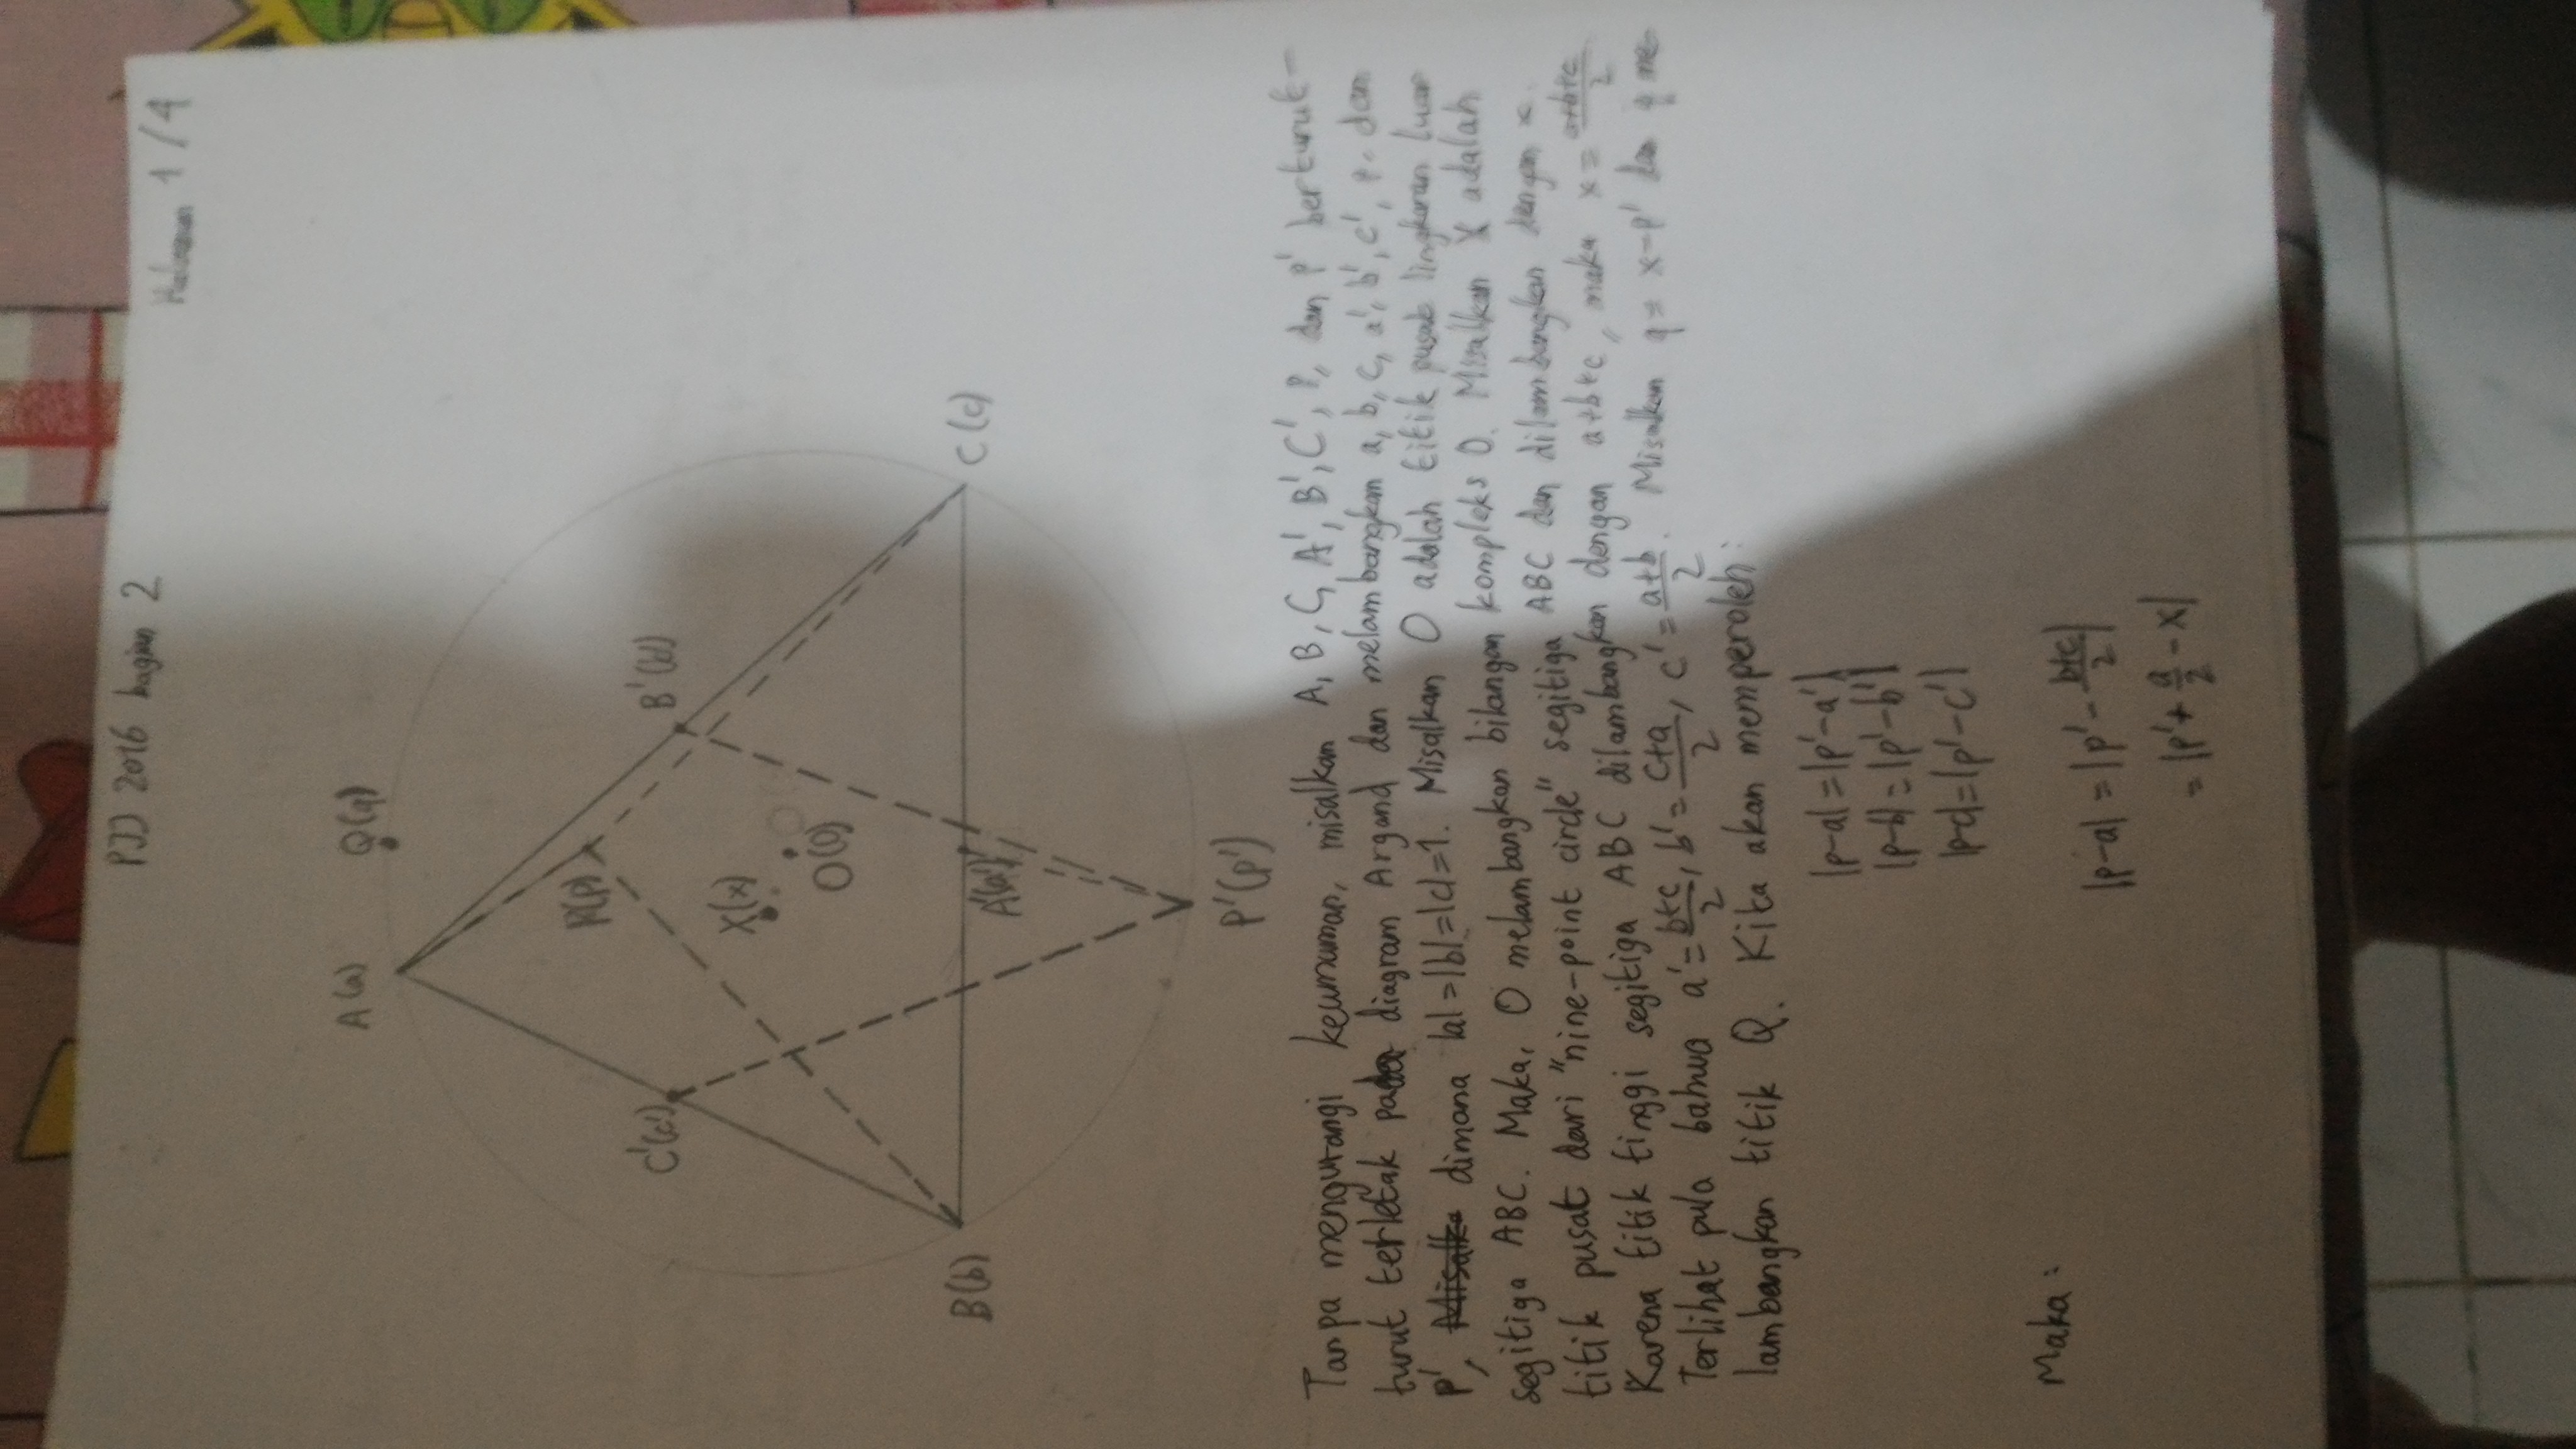 PJJ 2016 bagian 2
Halaman 1/4
A(a)
Q(q)
P(p)
C'(c')
B'(b')
X(x)
O(0)
B(b)
A'(a')
C(c)
P'(p')
Tanpa mengurangi keumuman, misalkan A, B, C, A', B', C', P, dan P' berturut-
turut terletak pada diagram Argand dan melambangkan a, b, c, a', b', c', p, dan
p', Misalka dimana |a|=|b|=|c|=1. Misalkan O adalah titik pusat lingkaran luar
segitiga ABC. Maka, O melambangkan bilangan kompleks 0. Misalkan X adalah
titik pusat dari "nine-point circle" segitiga ABC dan dilambangkan dengan x.
Karena titik tinggi segitiga ABC dilambangkan dengan a+b+c, maka x = \frac{a+b+c}{2}
Terlihat pula bahwa a' = \frac{b+c}{2}, b' = \frac{c+a}{2}, c' = \frac{a+b}{2}. Misalkan q = x-p' dan q me-
lambangkan titik Q. Kita akan memperoleh:
|p-a|=|p'-a'|
|p-b|=|p'-b'|
|p-c|=|p'-c'|
Maka:
|p-a| = |p' - \frac{b+c}{2}|
= |p' + \frac{a}{2} - x|